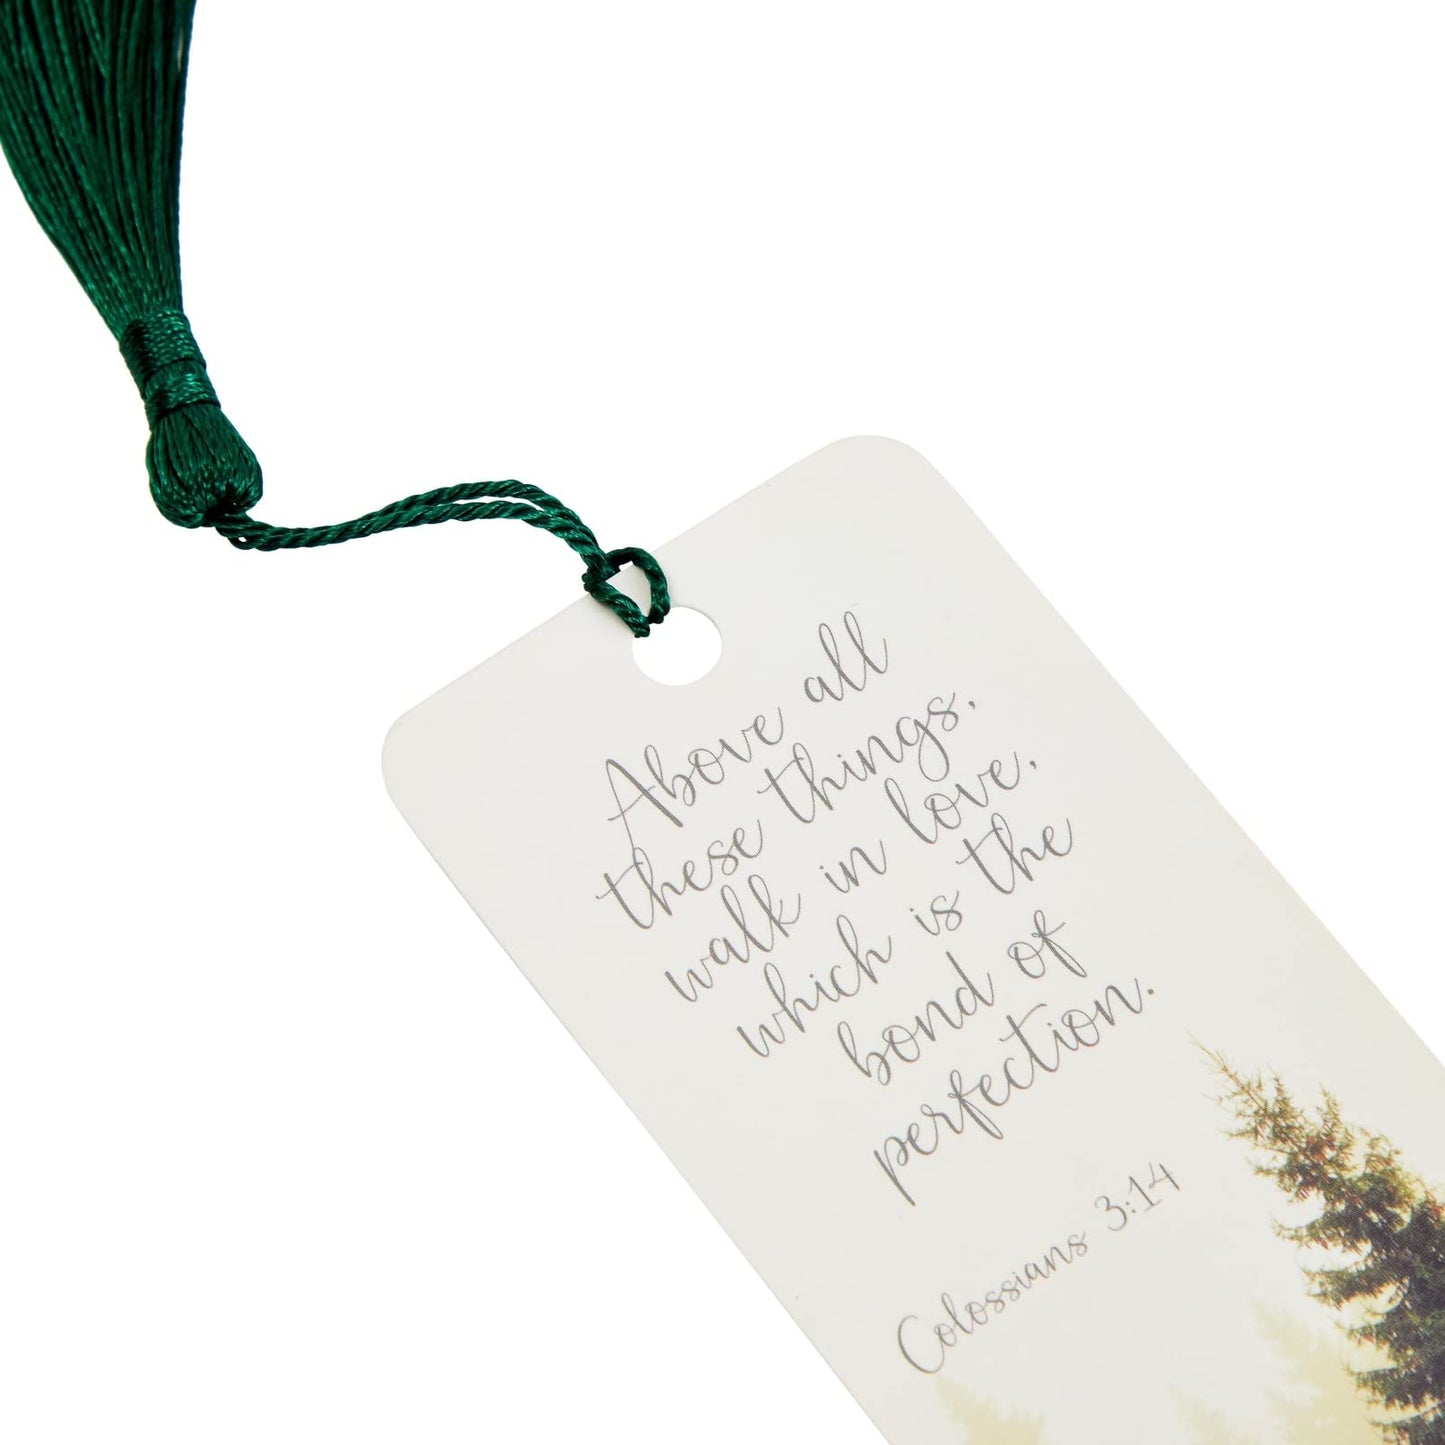 Above all
these things,
walk in love,
which is the
bond of
perfection.
Colossians 3:14